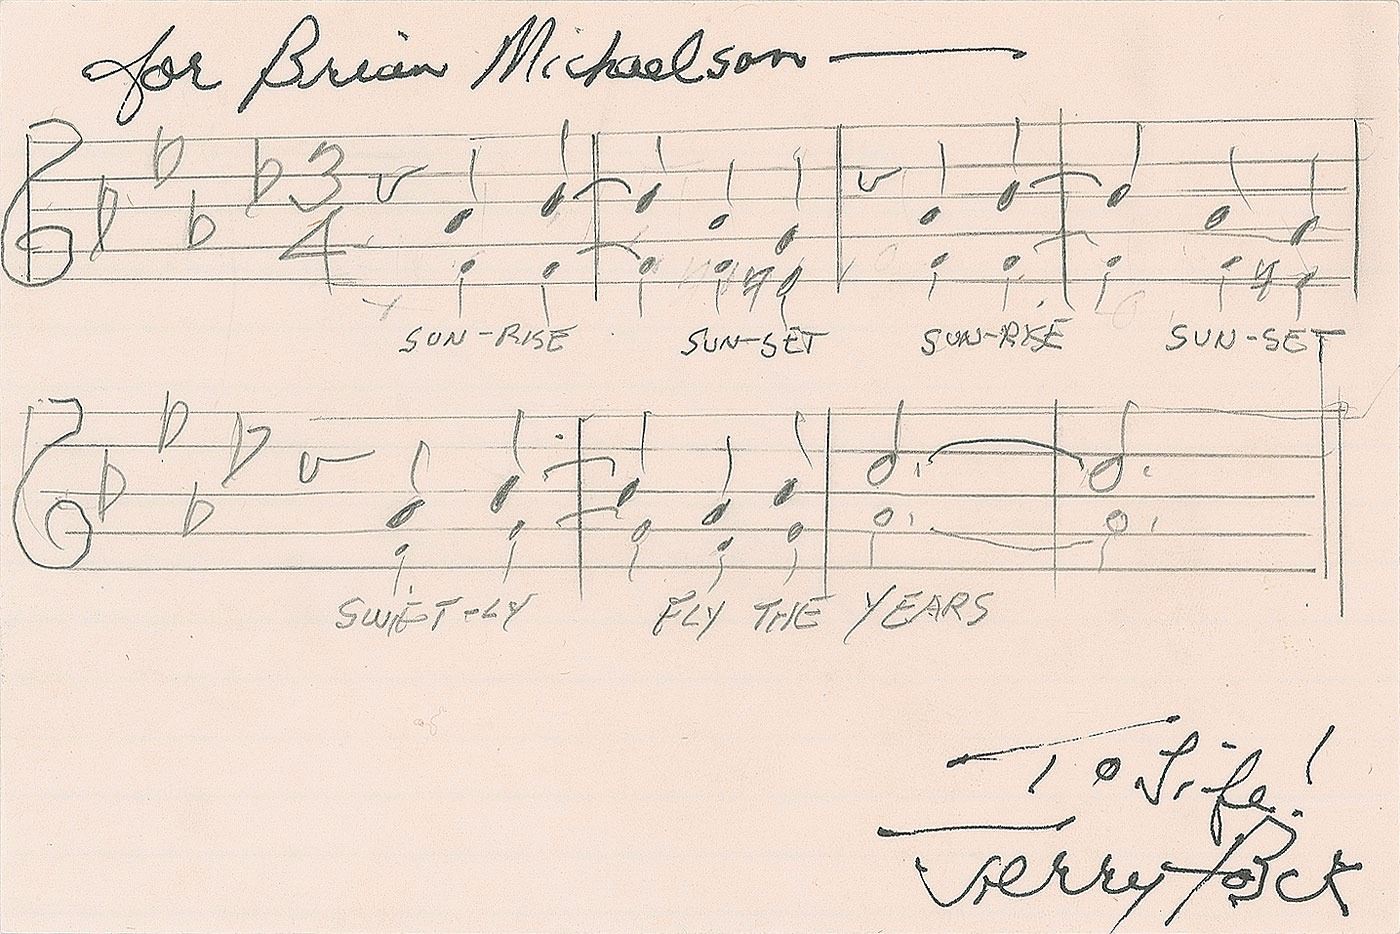 for Brian Michaelson
3
4
SUN-RISE SUN-SET SUN-RISE SUN-SET
SWIFT-LY FLY THE YEARS
To Life!
Jerry Bock